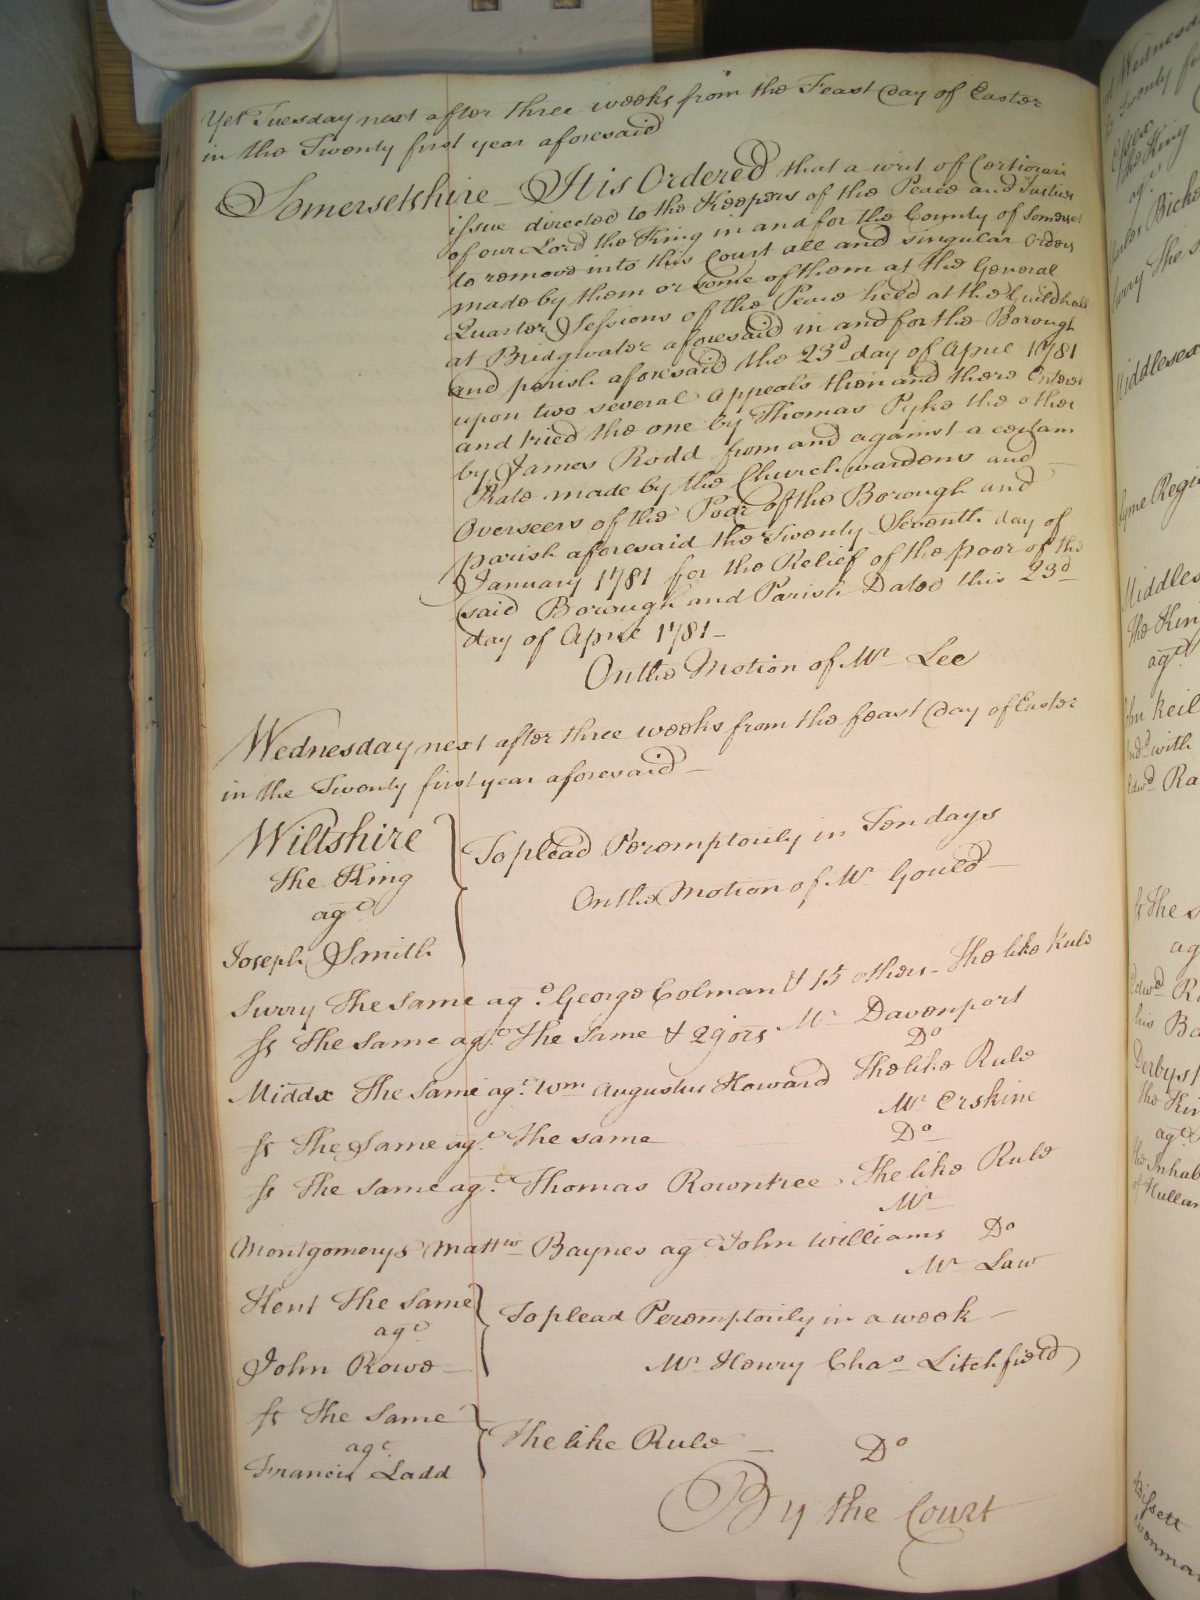 Yet Tuesday next after three weeks from the Feast Day of Easter
in the Twenty first year aforesaid
Somersetshire – It is Ordered that a writ of Certiorari
issue directed to the Keepers of the Peace and Justices
of our Lord the King in and for the County of Somerset
to remove into this Court all and singular Orders
made by them or some of them at the General
Quarter Sessions of the Peace held at the Guildhall
at Bridgwater aforesaid in and for the Borough
and parish aforesaid the 23d day of April 1781
upon two several Appeals then and there Entered
and tried the one by Thomas Pyke the other
by James Rodd from and against a certain
Rate made by the Churchwardens and
Overseers of the Poor of the Borough and
parish aforesaid the Twenty Seventh day of
January 1781 for the Relief of the poor of the
said Borough and Parish Dated this 23d
day of April 1781 –
On the Motion of Mr Lee
Wednesday next after three weeks from the feast Day of Easter
in the Twenty first year aforesaid –
Wiltshire
The King
agt
Joseph Smith
To plead Peremptorily in Ten days
On the Motion of Mr Gould –
Surry The Same agt George Colman & 15 others – The like Rule
Mr Davenport
ss The same agt The same & 29 ors Do
Middx The Same agt Wm Augustus Howard The like Rule
Mr Erskine
ss The Same agt The same Do
ss The same agt Thomas Rowntree – The like Rule
Mr –
Montgomerys Mattw Baynes agt John Williams Do
Mr Law
Kent The Same
agt
John Rowe –
To plead Peremptorily in a week –
Mr Henry Chas Litchfield
ss The Same
agt
Francis Ladd
The like Rule – Do
By the Court
Middlesex
Lyme Regis
Middles
The Kin
agt
with
Edwd Ra
ss The s
ag
Edwd Ra
his Ba
Derbysh
The Kin
agt
Inhab
Bissett